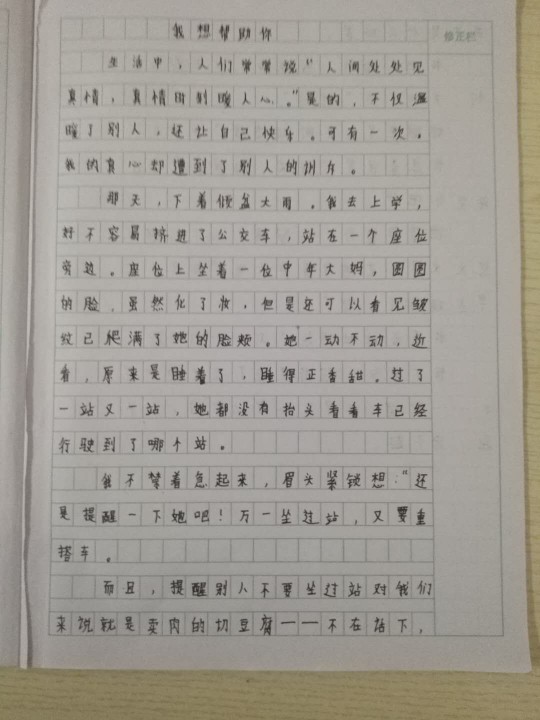 我想帮助你
修正栏
生活中，人们常常说“人间处处见
真情，真情时刻暖人心。”是的，不仅温
暖了别人，还让自己快乐。可有一次，
我的真心却遭到了别人的训斥。
那天，下着倾盆大雨。我去上学，
好不容易挤进了公交车，站在一个座位
旁边。座位上坐着一位中年大妈，圆圆
的脸，虽然化了妆，但是还可以看见皱
纹已爬满了她的脸颊。她一动不动，近
看，原来是睡着了，睡得正香甜。过了
一站又一站，她都没有抬头看看车已经
行驶到了哪个站。
我不禁着急起来，眉头紧锁想：“还
是提醒一下她吧！万一坐过站，又要重
搭车。
而且，提醒别人不要坐过站对我们
来说就是卖肉的切豆腐——不在话下，